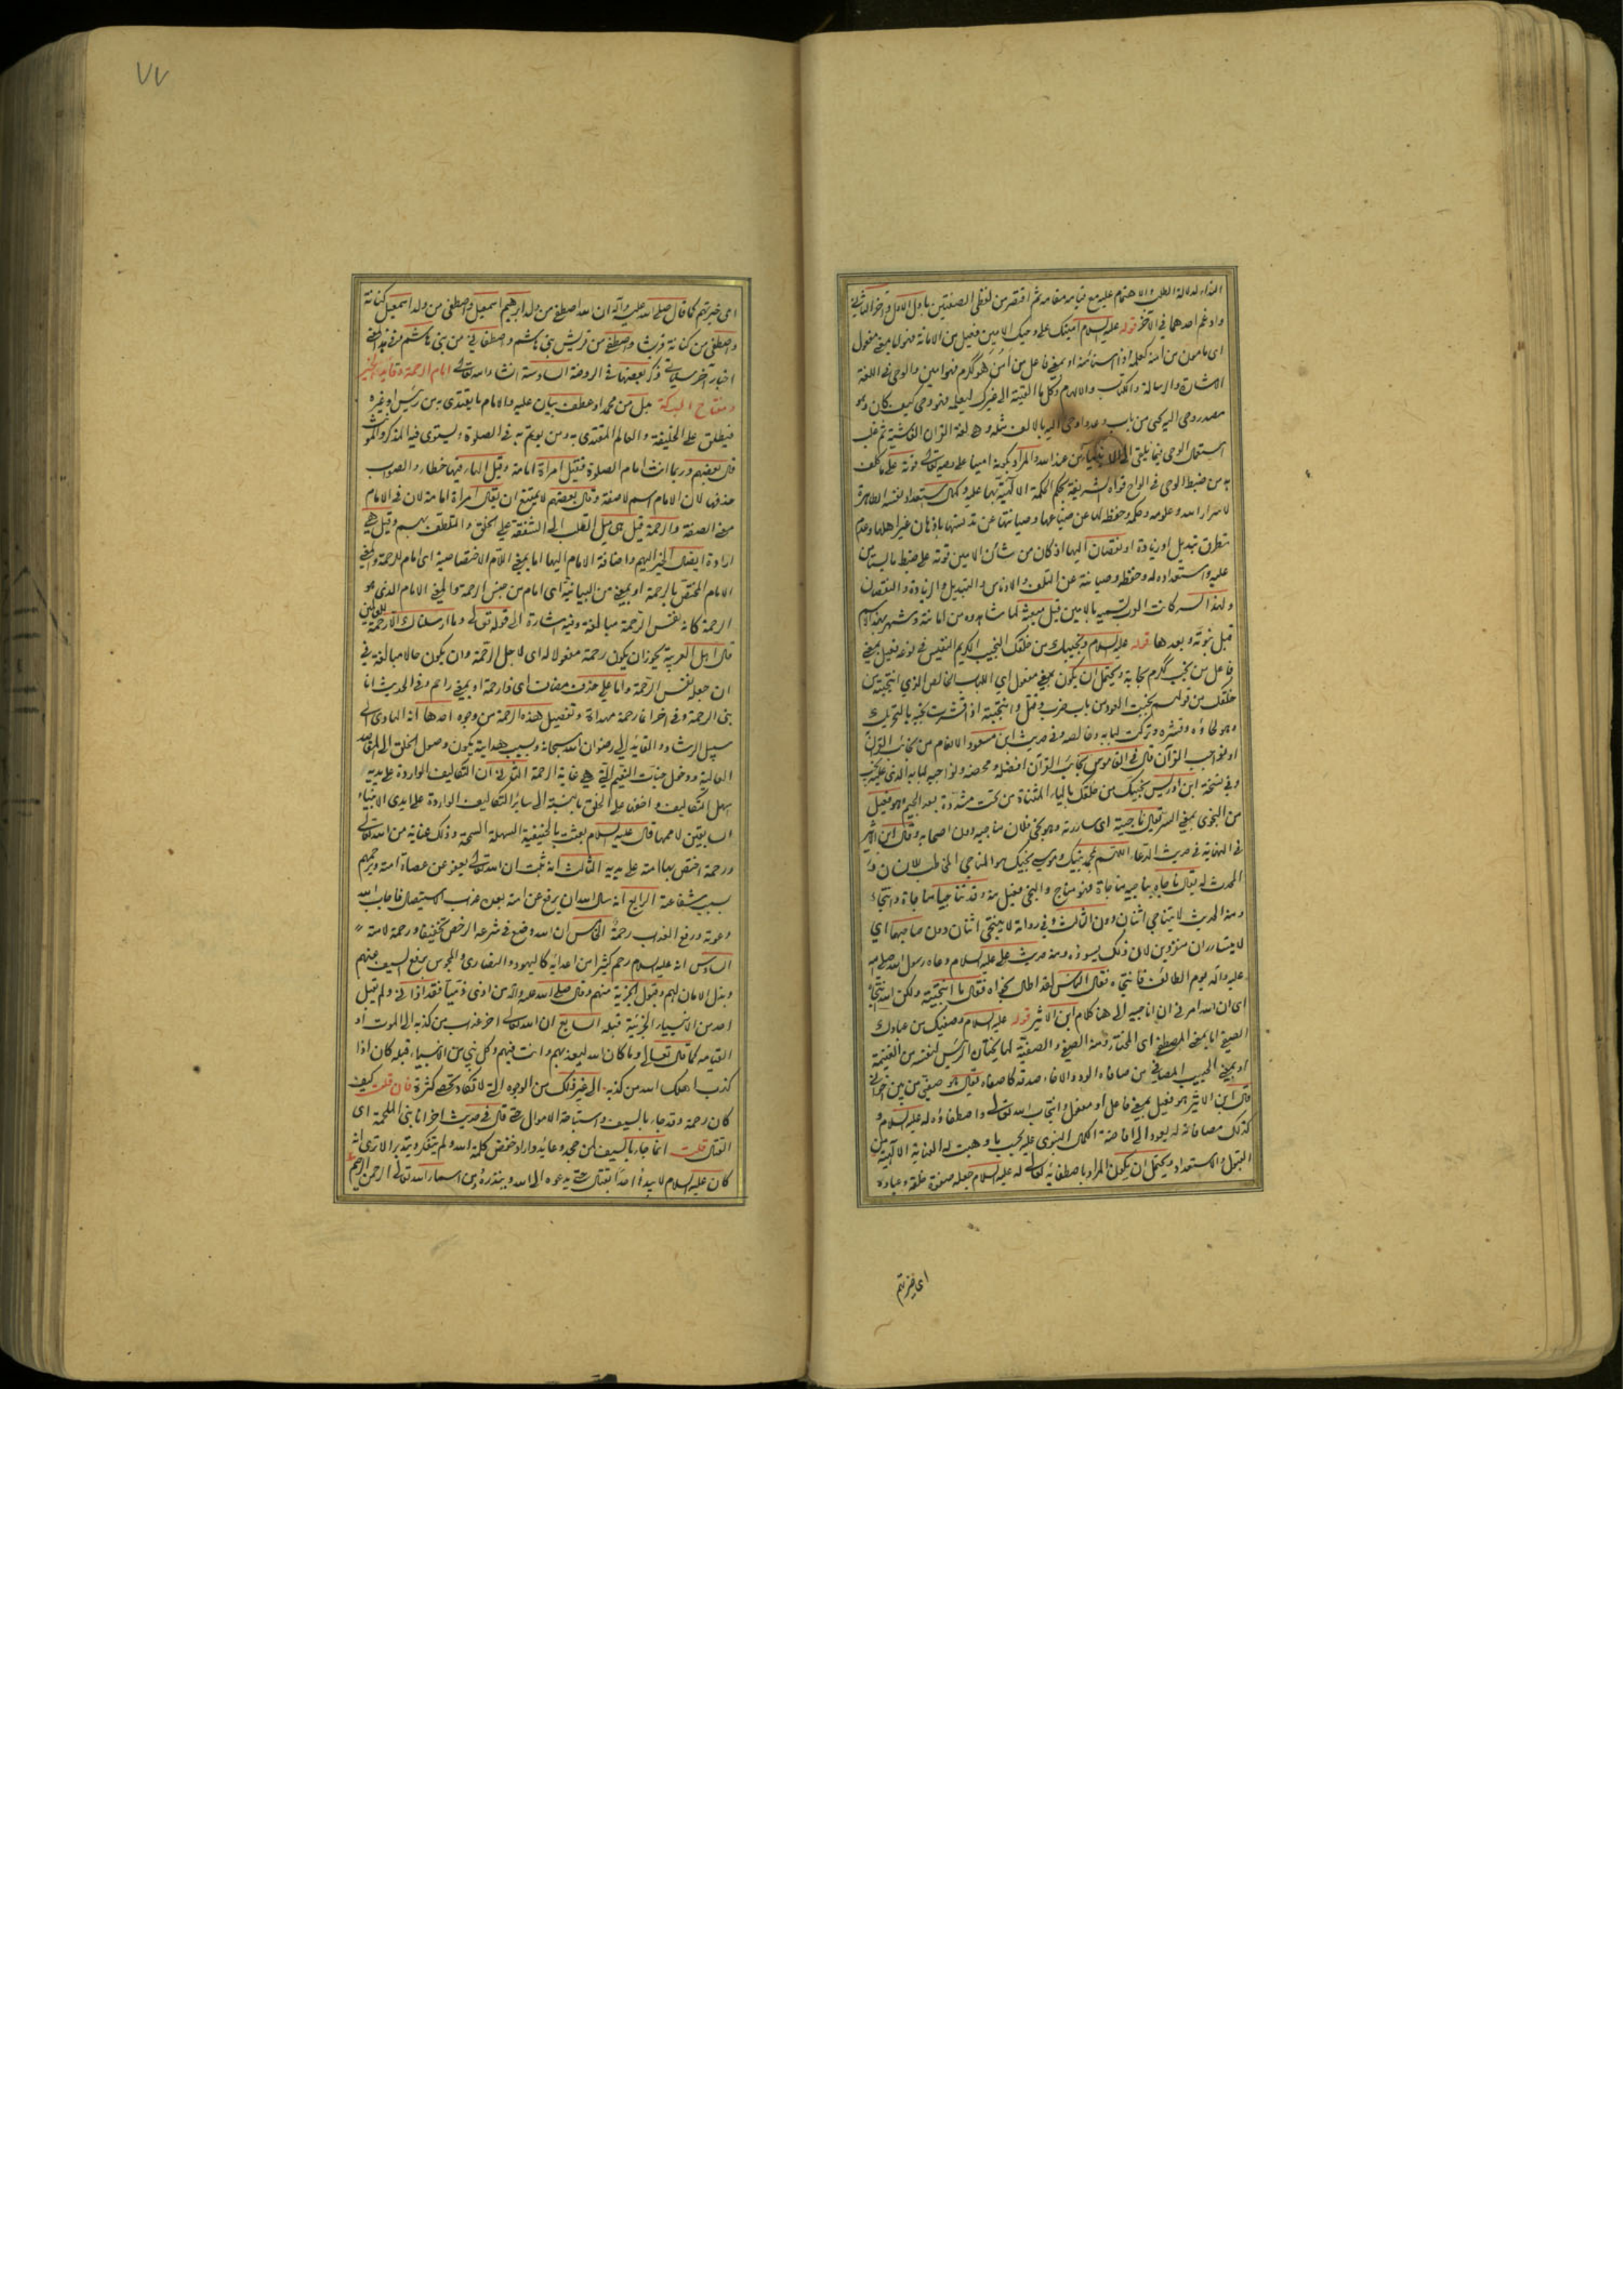 النداء لدلالة الطلب والاهتمام عليه مع قيامه مقامه ثم اقتصر من لفظي الصفتين باول الاول واخر الثاني
وادغم احدهما في الآخر قوله عليه السلام امينك على وحيك الامين فعيل من الامانة فهو اما بمعنى مفعول
اى مامون من امنه كعلمه اذا استامنه او بمعنى فاعل من امن هو ككرم فهو امين والوحي في اللغة
الاشارة والرسالة والكتاب والالهام وكل ما القيته الى غيرك ليعلمه فهو وحى كيف كان وهو
مصدر وحى اليه يحى من باب وعد واوحى اليه بالالف مثله وهى لغة القران الفاشية ثم غلب
استعمال الوحي فيما يلقى الى الانبياء من عند الله والمراد بكونه امينا على وحيه تعالى قوته على ما كلف
به من ضبط الوحى في الواح قواه الشريفة بحكم الحكمة الالهية بها عليه وكمال استعداد نفسه الطاهرة
لاسرار الله وعلومه وحكمه وحفظه لها عن ضياعها وصيانتها عن تدنسها باذهان غير اهلها وعدم
تطرق تبديل او زيادة او نقصان اليها اذ كان من شأن الامين قوته على ضبط ما يستامن
عليه واستعداده له وحفظه وصيانته عن التلف والادناس والتبديل والزيادة والنقصان
ولهذا السر كانت العرب تسميه بالامين قبل مبعثه لما شاهدوه من امانته وشهر بهذا الاسم
قبل نبوته وبعدها قوله عليه السلام ونجيبك من خلقك النجيب الكريم النفيس في نوعه فعيل بمعنى
فاعل من نجب ككرم نجابة ويحتمل ان يكون بمعنى مفعول اي اللباب الخالص الذي انتجبته من
خلقك من قولهم نجبت العود من باب ضرب وقتل وانتجبته اذا قشرت نجبه بالتحريك
وهو لحاؤه وقشره وتركت لبابه وخالصه وفى حديث ابن مسعود الانعام من نجائب القران
او نواجب القرآن قال في القاموس نجائب القرآن افضله ومحضه ونواجبه لبابه الذى عليه نجب
وفي نسخة ابن ادريس نجيك من خلقك بالياء المثناة من تحت مشددة بعد الجيم وهو فعيل
من النجوى بمعنى السر يقال ناجيته اى ساررته وهو نجى فلان مناجيه دون اصحابه وقال ابن الاثير
في النهاية في حديث الدعاء اللهم بمحمد نبيك وموسى نجيك هو المناجي المخاطب للانسان و
المحدث له يقال ناجاه يناجيه مناجاة فهو مناج والنجى فعيل منه وقد تناجيا مناجاة وانتجاء
ومنه الحديث لا يتناجى اثنان دون الثالث وفي رواية لا ينتجى اثنان دون صاحبهما اي
لا يتساران منفردين لان ذلك يسوءه ومنه حديث على عليه السلام دعاه رسول الله صلى الله
عليه واله يوم الطائف فانتجاه فقال الناس لقد اطال نجواه فقال ما انتجيته ولكن الله انتجاه
اى ان الله امرنى ان اناجيه الى هنا كلام ابن الاثير قوله عليه السلام وصفيك من عبادك
الصفى اما بمعنى المصطفى اى المختار ومنه الصفى والصفية لما يختاره الرئيس لنفسه من الغنيمة
او بمعنى الحبيب المصافى من صافاه الود والاخاء صدقه كاصفاه يقال هو صفيى من بين اخوانى
قال ابن الاثير هو فعيل بمعنى فاعل او مفعول وانتجاب الله تعالى واصطفاؤه له عليه السلام و
كذلك مصافاته له يعود الى افاضة الكمال النبوى عليه بحسب ما وهبت له العناية الالهية من
القبول والاستعداد ويحتمل ان يكون المراد باصطفائه تعالى له عليه السلام جعله صفوة خلقه وعباده
اى خيرتهم
٧٧
اى خيرتهم كما قال صلى الله عليه وآله ان الله اصطفى من ولد ابرهيم اسمعيل واصطفى من ولد اسمعيل كنانة
واصطفى من كنانة قريشا واصطفى من قريش بنى هاشم واصطفانى من بنى هاشم وفي هذا المعنى
اخبار آخر سياتى ذكر بعضها في الروضة السادسة انشاء الله تعالى امام الرحمة وقائد الخير
ومفتاح البركة بدل من محمد او عطف بيان عليه والامام ما يقتدى به من رئيس او غيره
فيطلق على الخليفة والعالم المقتدى به ومن يوتم به في الصلوة ويستوى فيه المذكر والمؤنث
قال بعضهم وربما انث امام الصلوة فقيل امراة امامة وقيل الهاء فيها خطاء والصواب
حذفها لان الامام اسم لا صفة وقال بعضهم لا يمتنع ان يقال امراة امامة لان فى الامام
معنى الصفة والرحمة قيل هى ميل القلب الى الشفقة على الخلق والتلطف بهم وقيل هي
ارادة ايصال الخير اليهم واضافة الامام اليها اما بمعنى اللام الاختصاصية اى امام للرحمة والمعنى
الامام المختص بالرحمة او بمعنى من البيانية اى امام من جنس الرحمة والمعنى الامام الذى هو
الرحمة كانه نفس الرحمة مبالغة وفيه اشارة الى قوله تعالى وما ارسلناك الا رحمة للعالمين
قال اهل العربية يجوز ان يكون رحمة مفعولا له اى لاجل الرحمة وان يكون حالا مبالغة في
ان جعله نفس الرحمة واما على حذف مضاف اى ذا رحمة او بمعنى راحم وفى الحديث انا
نبى الرحمة وفي اخر انا رحمة مهداة وتفصيل هذه الرحمة من وجوه احدها انه الهادى الى
سبيل الرشاد والقائد الى رضوان الله سبحانه وبسبب هدايته يكون وصول الخلق الى المقاصد
العالية ودخول جنات النعيم التي هي غاية الرحمة الثانى ان التكاليف الواردة على يديه
اسهل التكاليف واخفها على الخلق بالنسبة الى سائر التكاليف الواردة على ايدى الانبياء
السابقين لاممها قال عليه السلام بعثت بالحنيفية السهلة السمحة وذلك عناية من الله تعالى
ورحمة اختص بها امته على يديه الثالث انه ثبت ان الله تعالى يعفو عن عصاة امته ويرحمهم
بسبب شفاعته الرابع انه سال الله ان يرفع عن امته بعده عذاب الاستيصال فاجاب الله
دعوته ورفع العذاب رحمة الخامس ان الله وضع في شرعه الرخص تخفيفا ورحمة لامته
السادس انه عليه السلام رحم كثيرا من اعدائه كاليهود والنصارى والمجوس برفع السيف عنهم
وبذل الامان لهم وقبول الجزية منهم وقال صلى الله عليه واله من اذى ذميا فقد اذانى ولم يقبل
احد من الانبياء الجزية قبله السابع ان الله تعالى اخر عذاب من كذبه الى الموت او
القيامه كما قال تعالى وما كان الله ليعذبهم وانت فيهم وكل نبي من الانبياء قبله كان اذا
كذب اهلك الله من كذبه الى غير ذلك من الوجوه التى لا تكاد تحصى كثرة فان قلت كيف
كان رحمة وقد جاء بالسيف واستباحة الاموال حتى قال في حديث اخر انا نبى الملحمة اى
القتال قلت انما جاء بالسيف لمن جحد وعاند واراد خفض كلمة الله ولم يتفكر ويتدبر الا ترى انه
كان عليه السلام لا يبدأ احدا بقتال حتى يدعوه الى الله وينذره ومن اسماء الله تعالى الرحمن الرحيم